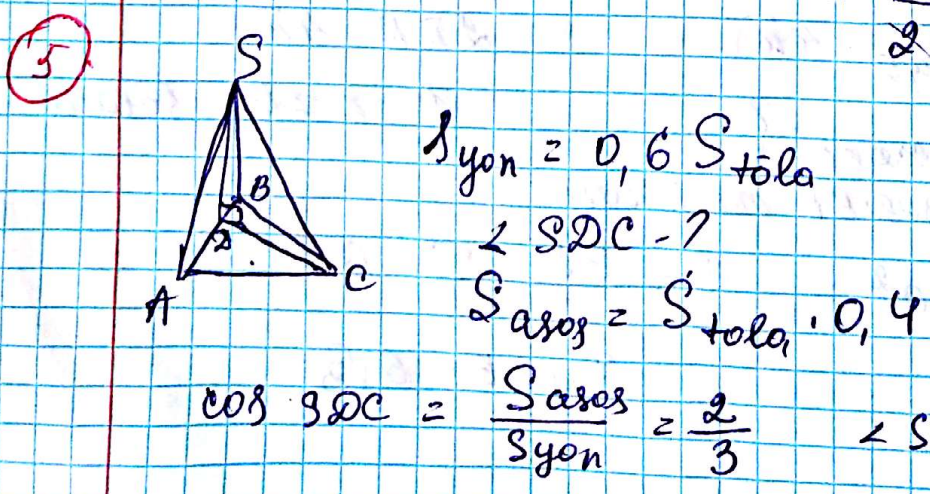 2
5
S
B
D
A
C
Syon = 0,6 Stõla
∠ SDC - ?
Sasos = Stola · 0,4
cos SDC = Sasos / Syon = 2/3 ∠ S